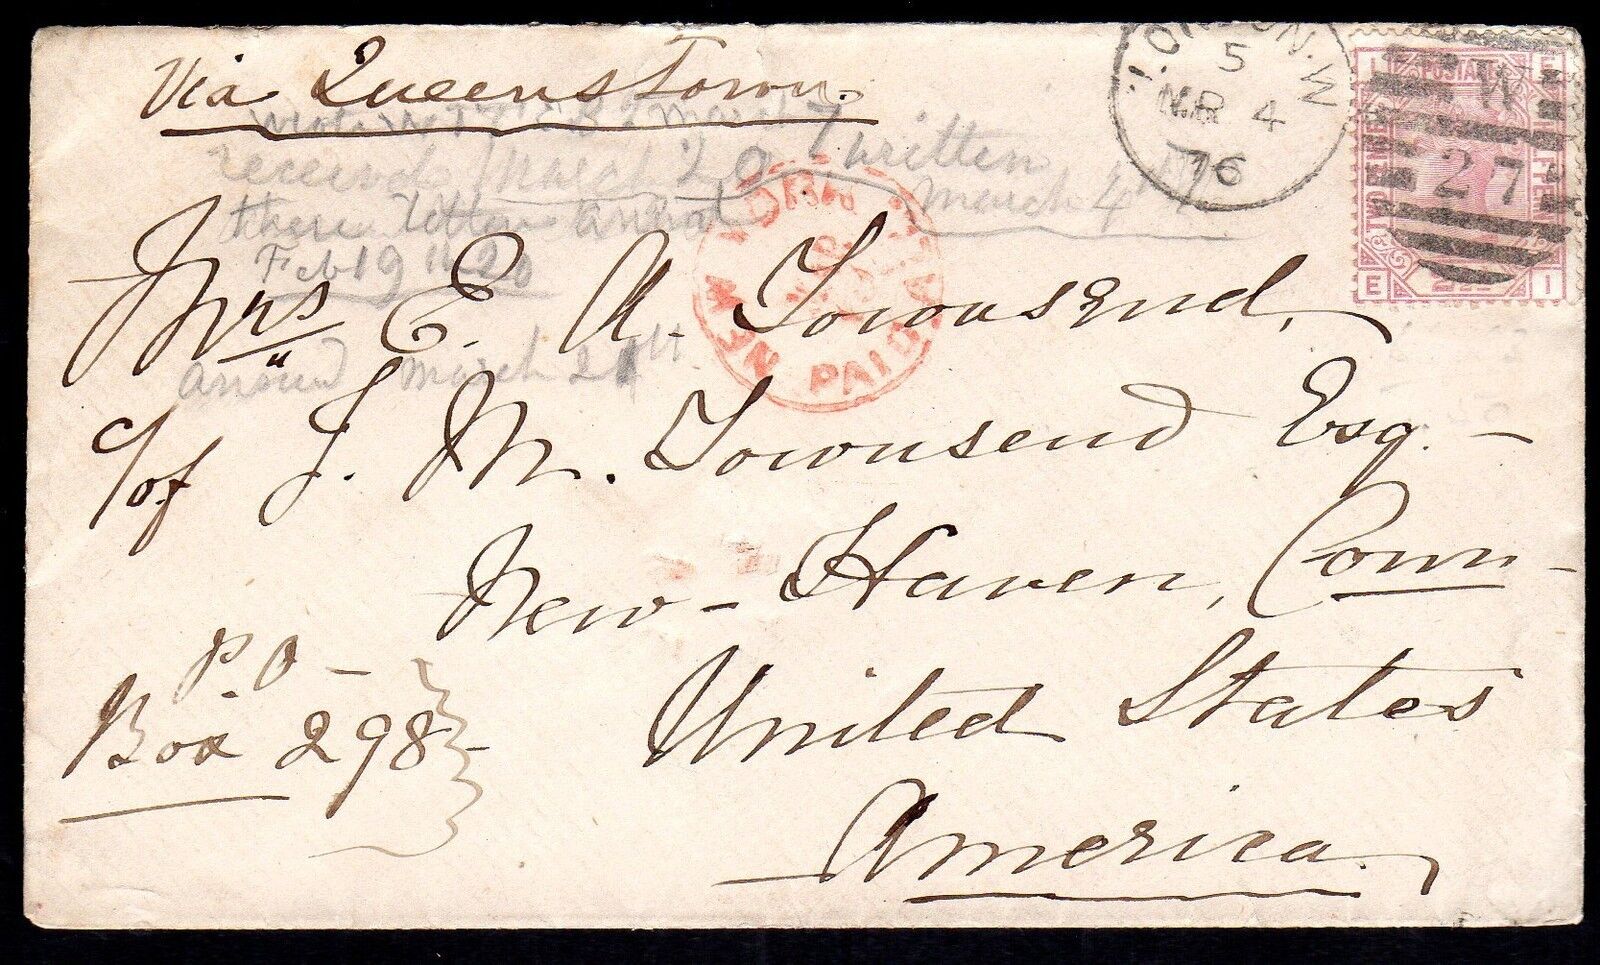 Via Queenstown.
LONDON.W
5
MR 4
76
POSTAGE
W
27
TWO PENCE
E I
March
received March 20 written
March 4th
these letters
Feb 19
NEW YORK
PAID ALL
Mrs E. A. Townsend,
March 21
c/of J. M. Townsend Esq. -
New-Haven, Conn-
P.O-
Box 298-
United States
America.